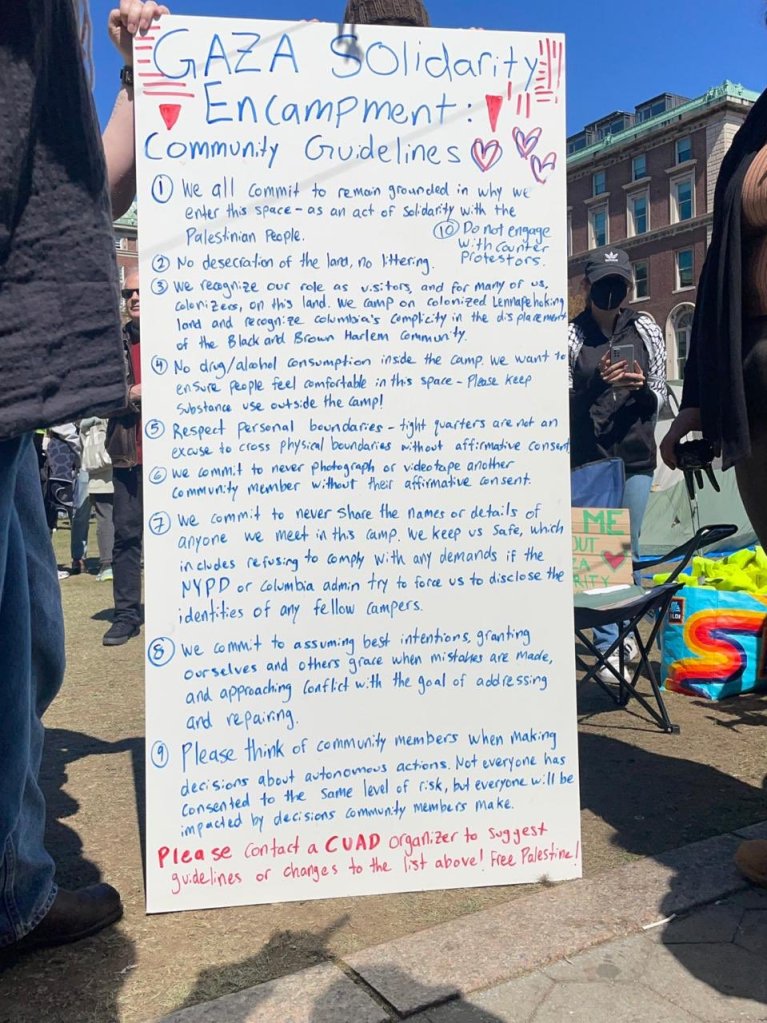 GAZA Solidarity
Encampment:
Community Guidelines
① We all commit to remain grounded in why we
enter this space - as an act of solidarity with the
Palestinian People.
⑩ Do not engage
with counter
Protestors.
② No desecration of the land, no littering.
③ We recognize our role as visitors, and for many of us,
colonizers, on this land. We camp on colonized Lennapehoking
land and recognize columbia's complicity in the displacement
of the Black and Brown Harlem Community.
④ No drug/alcohol consumption inside the camp. We want to
ensure people feel comfortable in this space - Please keep
substance use outside the camp!
⑤ Respect Personal boundaries - tight quarters are not an
excuse to cross physical boundaries without affirmative consent
⑥ we commit to never photograph or videotape another
community member without their affirmative consent.
⑦ We commit to never share the names or details of
anyone we meet in this camp. We keep us safe, which
includes refusing to comply with any demands if the
NYPD or Columbia admin try to force us to disclose the
identities of any fellow campers.
⑧ we commit to assuming best intentions, granting
ourselves and others grace when mistakes are made,
and approaching conflict with the goal of addressing
and repairing.
⑨ Please think of community members when making
decisions about autonomous actions. Not everyone has
consented to the same level of risk, but everyone will be
impacted by decisions community members make.
Please contact a CUAD organizer to suggest
guidelines or changes to the list above! Free Palestine!
ME